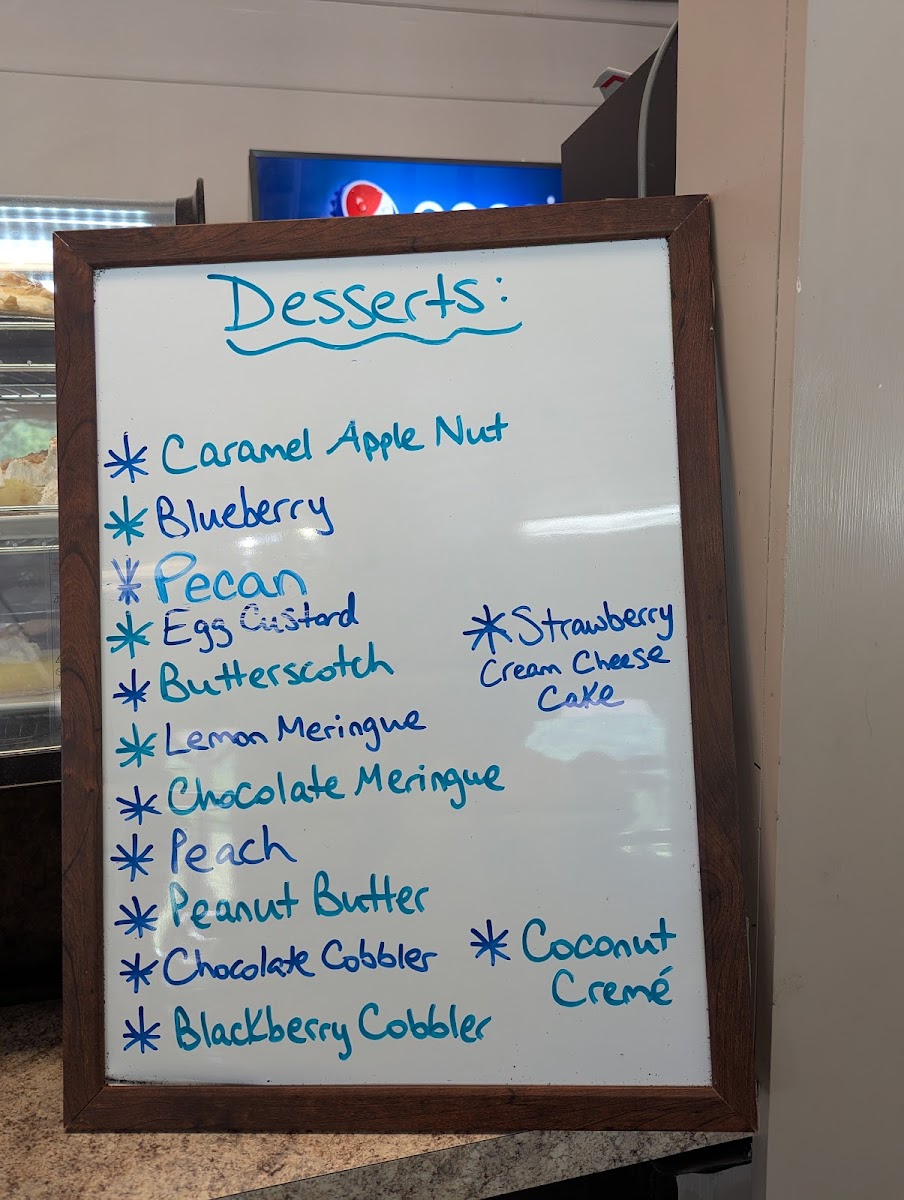 Desserts:
* Caramel Apple Nut
* Blueberry
* Pecan
* Egg Custard
* Butterscotch
* Lemon Meringue
* Chocolate Meringue
* Peach
* Peanut Butter
* Chocolate Cobbler
* Blackberry Cobbler
* Strawberry
Cream Cheese
Cake
* Coconut
Cremé